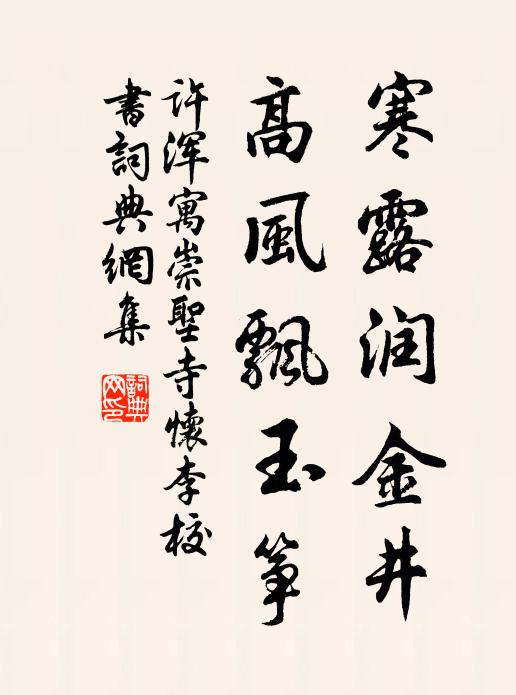 寒露润金井
高風飄玉筝
许浑寓崇聖寺懷李校
書詞典網集
詞典
网印